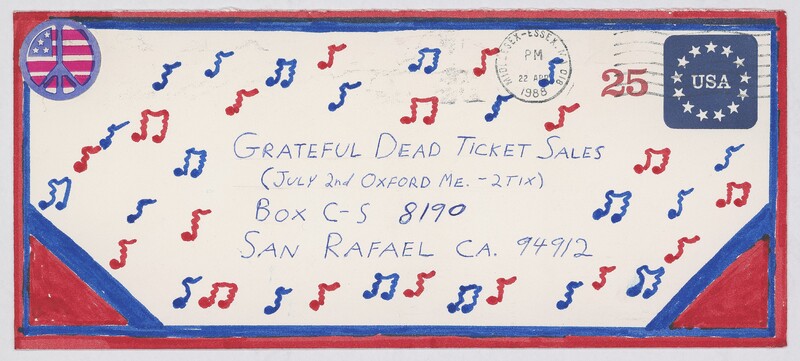 MIDDLESEX-ESSEX, MA
PM
22 APR
1988
25
USA
GRATEFUL DEAD TICKET SALES
(JULY 2nd OXFORD ME. - 2TIX)
BOX C-S 8190
SAN RAFAEL CA. 94912